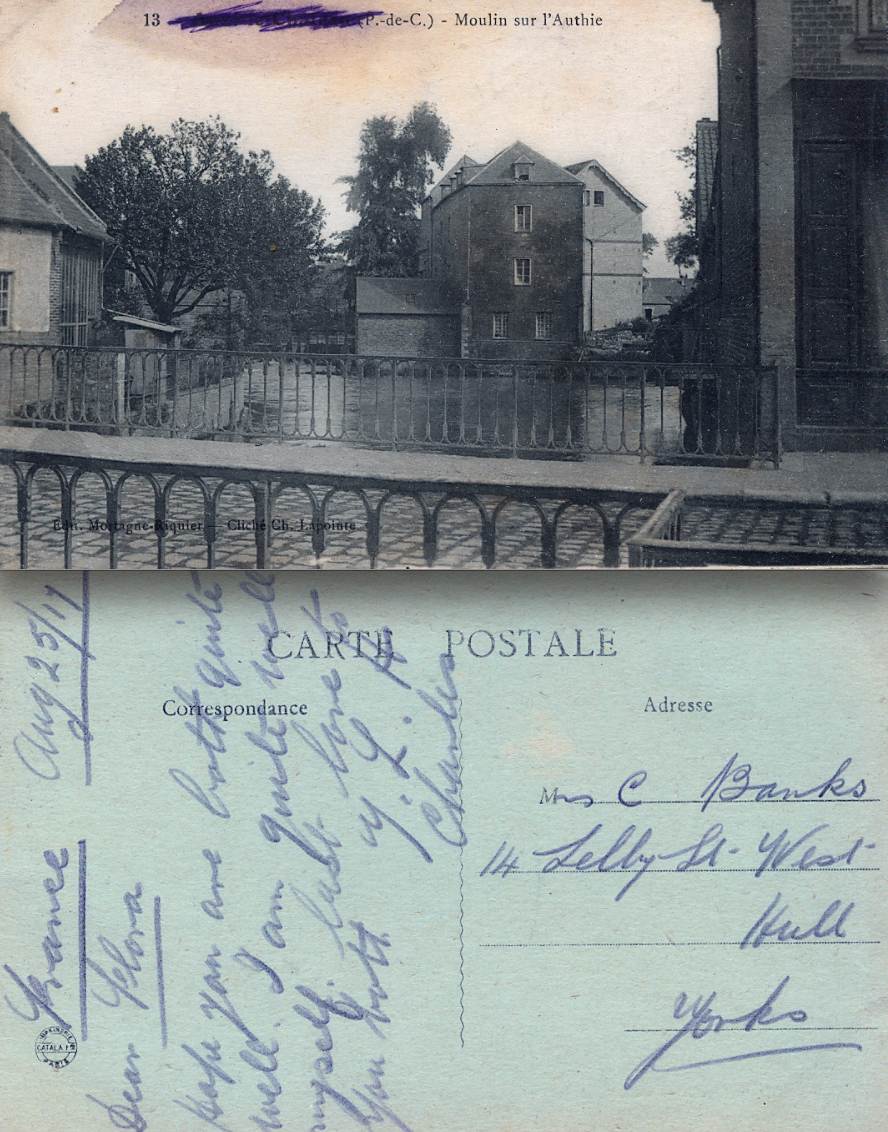 13 (P.-de-C.) - Moulin sur l'Authie
Edit. Mortagne-Riquier — Cliché Ch. Lapointe
CARTE POSTALE
Correspondance
Adresse
France Aug 25/17
Dear Flora
hope you are both quite
well. I am quite well
myself. best love to
you both
Charlie
Mrs C Banks
14 Selby St- West-
Hull
Yorks
IMPRIMERIE
CATALA Fres
PARIS